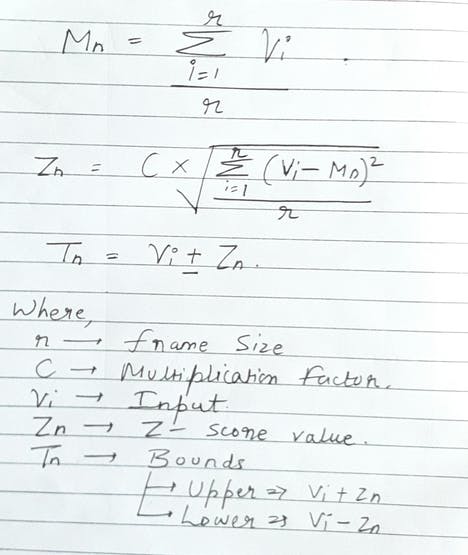 Mn = Σ_{i=1}^{r} Vi / r .
Zn = C × √( Σ_{i=1}^{r} (Vi - Mn)² / r )
Tn = Vi ± Zn.
Where,
r → frame Size
C → Multiplication Factor.
Vi → Input.
Zn → Z- score value.
Tn → Bounds
↳ Upper ⇒ Vi + Zn
↳ Lower ⇒ Vi - Zn